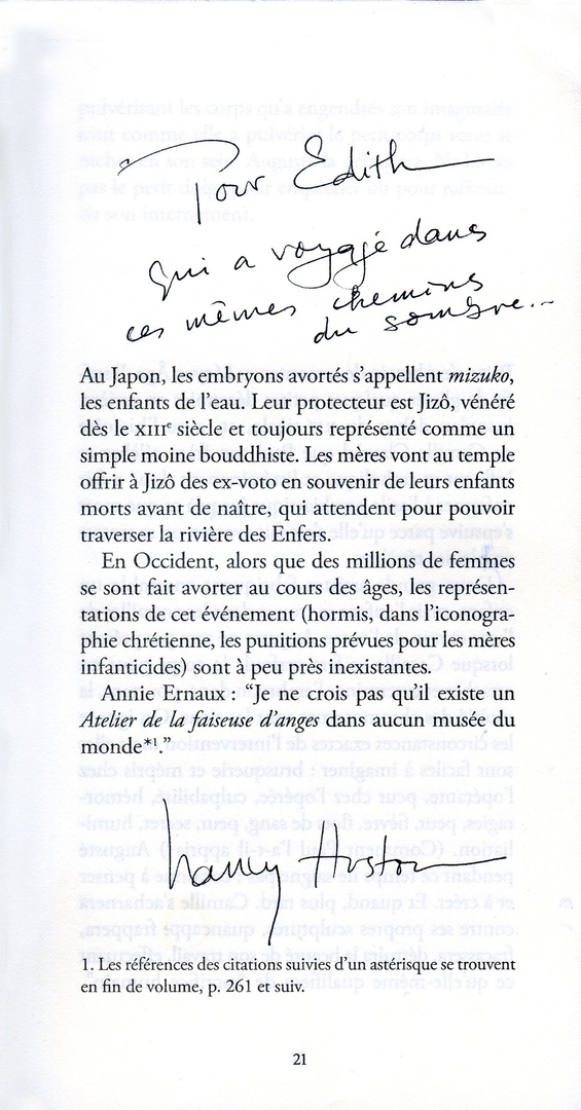 Pour Edith
qui a voyagé dans
ces mêmes chemins
du sombre...
Au Japon, les embryons avortés s'appellent mizuko,
les enfants de l'eau. Leur protecteur est Jizô, vénéré
dès le XIIIe siècle et toujours représenté comme un
simple moine bouddhiste. Les mères vont au temple
offrir à Jizô des ex-voto en souvenir de leurs enfants
morts avant de naître, qui attendent pour pouvoir
traverser la rivière des Enfers.
En Occident, alors que des millions de femmes
se sont fait avorter au cours des âges, les représen-
tations de cet événement (hormis, dans l'iconogra-
phie chrétienne, les punitions prévues pour les mères
infanticides) sont à peu près inexistantes.
Annie Ernaux : “Je ne crois pas qu'il existe un
Atelier de la faiseuse d'anges dans aucun musée du
monde*¹.”
Nancy Huston
1. Les références des citations suivies d'un astérisque se trouvent
en fin de volume, p. 261 et suiv.
21